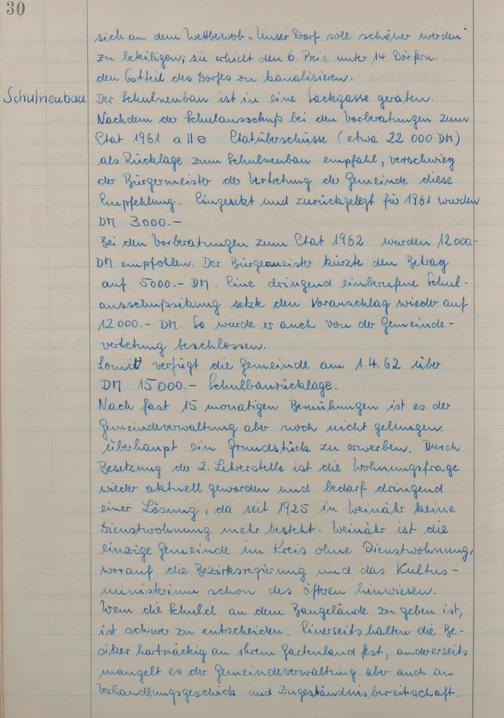 30
sich an dem Wettbewerb "Unser Dorf soll schöner werden"
zu beteiligen; sie erhielt den 6. Preis unter 14 Dörfern.
den Ostteil des Dorfes zu kanalisieren.
Schulneubau
Der Schulneubau ist in eine Sackgasse geraten.
Nachdem der Schulausschuß bei den Vorberatungen zum
Etat 1961 alle Etatüberschüsse (etwa 22 000 DM)
als Rücklage zum Schulneubau empfahl, verschwieg
der Bürgermeister der Vertretung der Gemeinde diese
Empfehlung. Eingesetzt und zurückgelegt für 1961 wurden
DM 3000.-
Bei den Vorberatungen zum Etat 1962 wurden 12000.-
DM empfohlen. Der Bürgermeister kürzte den Betrag
auf 5000.- DM. Eine dringend einberufene Schul-
ausschußsitzung setzte den Voranschlag wieder auf
12 000.- DM. So wurde er auch von der Gemeinde-
vertretung beschlossen.
Somit verfügt die Gemeinde am 1.4.62 über
DM 15000.- Schulbaurücklage.
Nach fast 15 monatigen Bemühungen ist es der
Gemeindeverwaltung aber noch nicht gelungen
überhaupt ein Grundstück zu erwerben. Durch
Besetzung der 2. Lehrerstelle ist die Wohnungsfrage
wieder aktuell geworden und bedarf dringend
einer Lösung, da seit 1925 in Weinähr keine
Dienstwohnung mehr besteht. Weinähr ist die
einzige Gemeinde im Kreis ohne Dienstwohnung,
worauf die Bezirksregierung und das Kultus-
ministerium schon des öftren hinwiesen.
Wem die Schuld an dem Baugelände zu geben ist,
ist schwer zu entscheiden. Einerseits halten die Be-
sitzer hartnäckig an ihrem Gartenland fest, andererseits
mangelt es der Gemeindeverwaltung aber auch an
Verhandlungsgeschick und Zugeständnisbereitschaft.